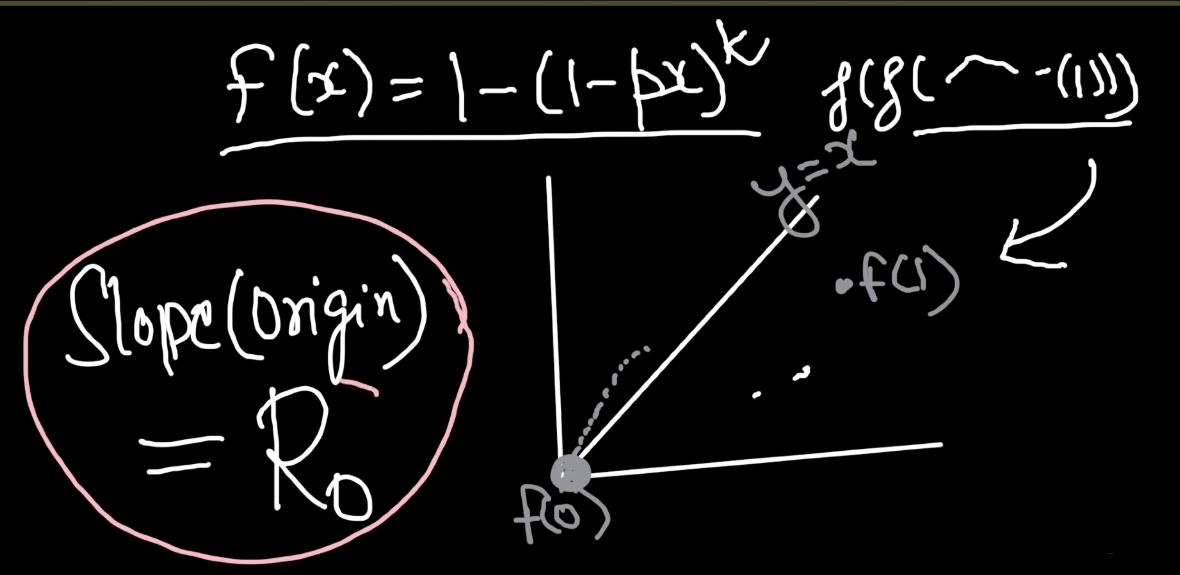 f(x) = 1 - (1 - px)^k
f(f( ⌒ -(1)))
y = x
.f(1)
Slope(origin)
= R0
f(0)